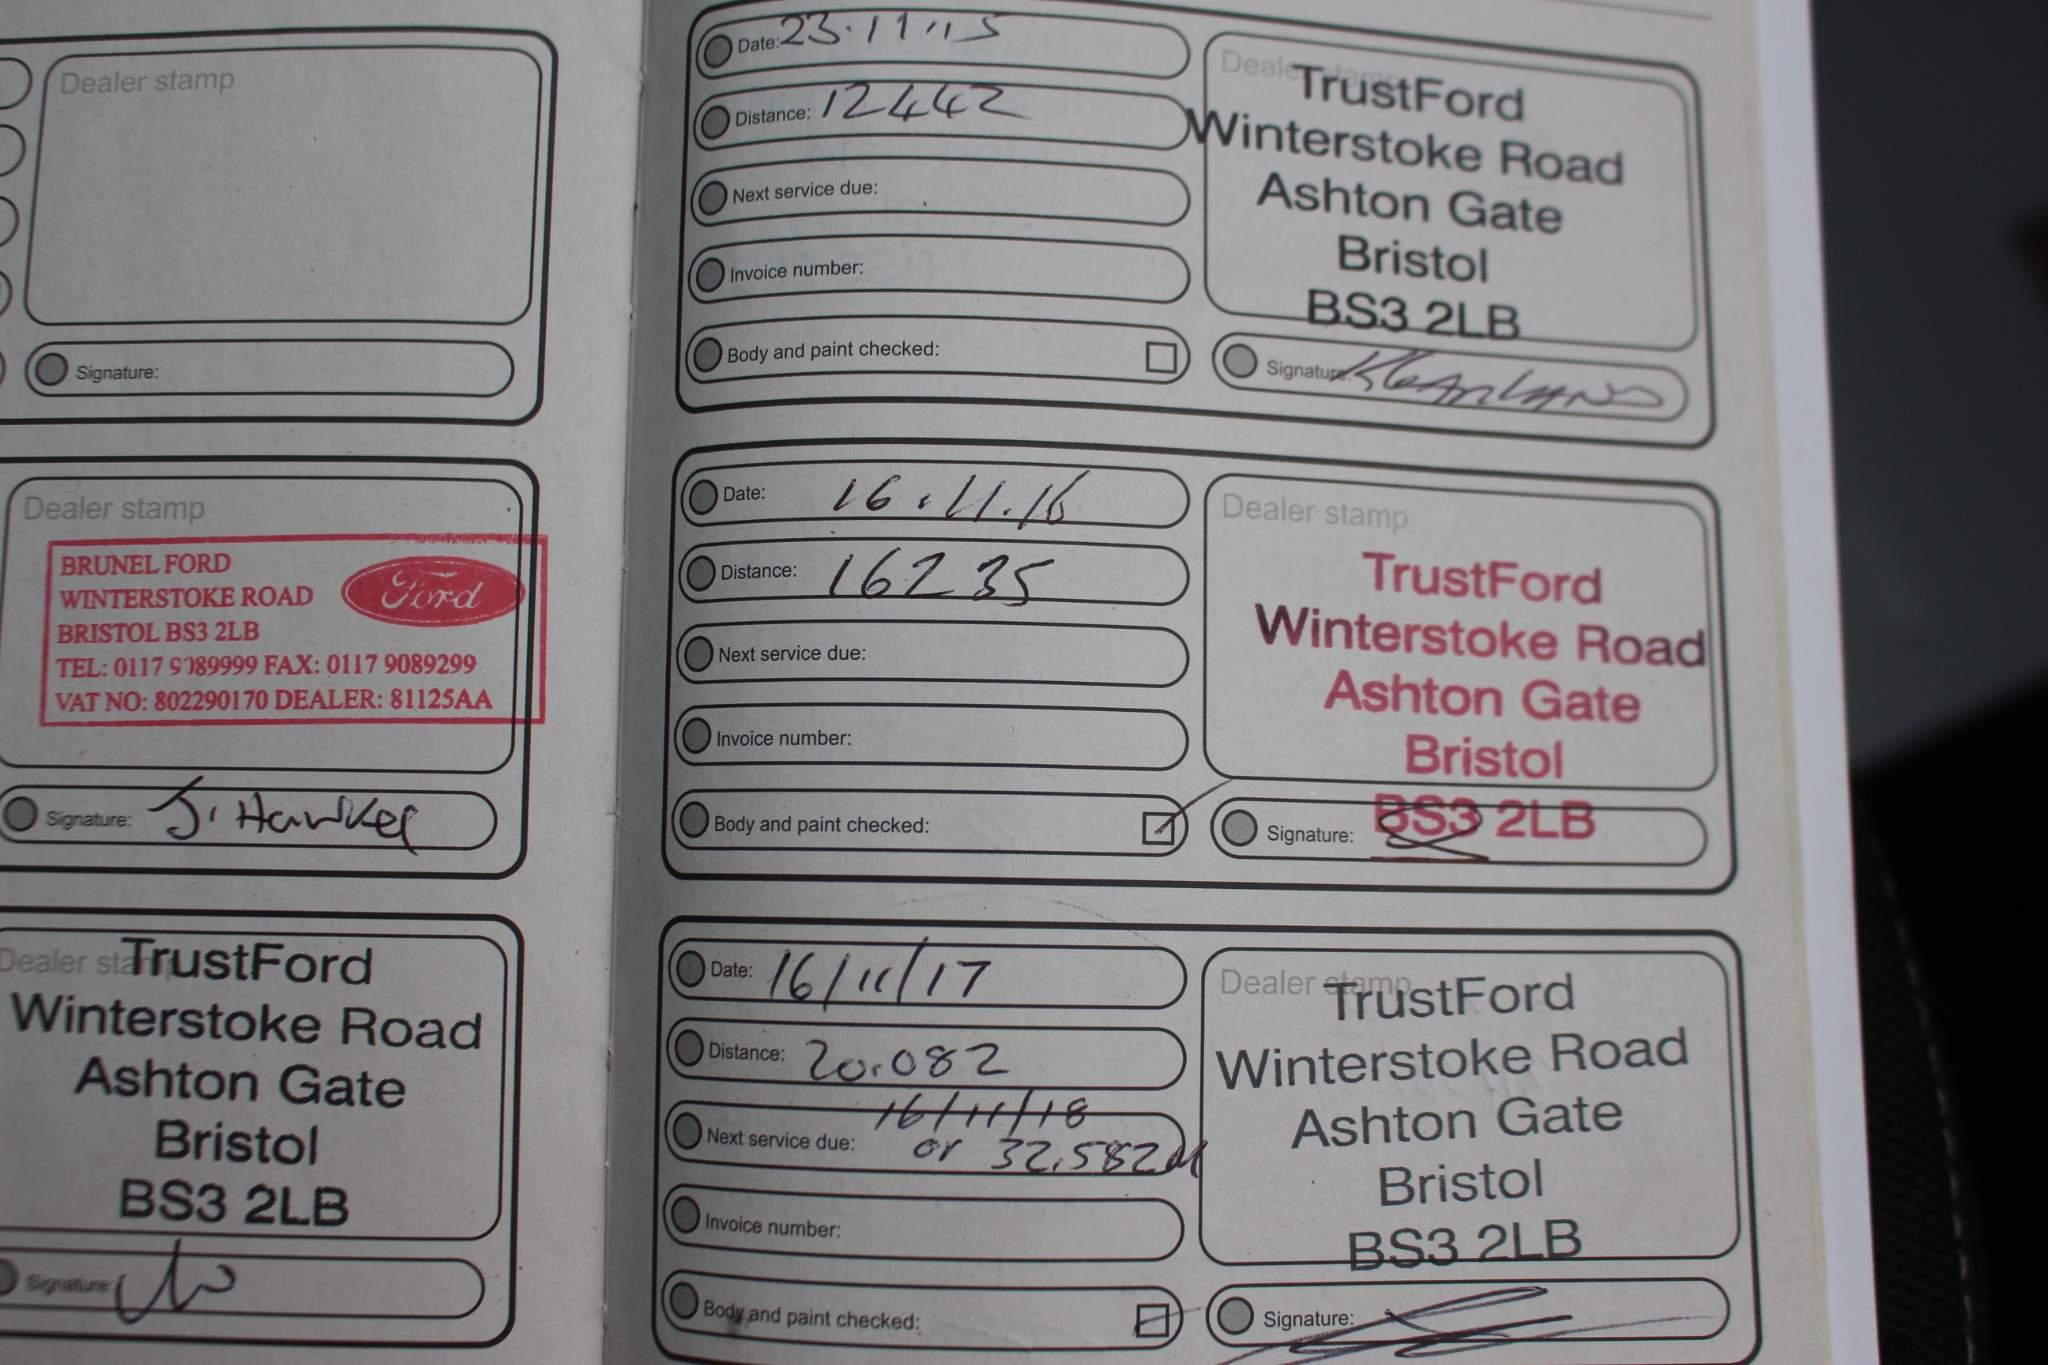 Dealer stamp
Signature:
Dealer stamp
BRUNEL FORD
WINTERSTOKE ROAD
BRISTOL BS3 2LB
TEL: 0117 9089999 FAX: 0117 9089299
VAT NO: 802290170 DEALER: 81125AA
Ford
Signature: J. Hawker
Dealer stamp
TrustFord
Winterstoke Road
Ashton Gate
Bristol
BS3 2LB
Signature:
Date: 23.11.15
Distance: 12442
Next service due:
Invoice number:
Body and paint checked:
Dealer stamp
TrustFord
Winterstoke Road
Ashton Gate
Bristol
BS3 2LB
Signature:
Date: 16.11.16
Distance: 16235
Next service due:
Invoice number:
Body and paint checked:
Dealer stamp
TrustFord
Winterstoke Road
Ashton Gate
Bristol
BS3 2LB
Signature:
Date: 16/11/17
Distance: 20.082
Next service due: 16/11/18
or 32,582M
Invoice number:
Body and paint checked:
Dealer stamp
TrustFord
Winterstoke Road
Ashton Gate
Bristol
BS3 2LB
Signature: